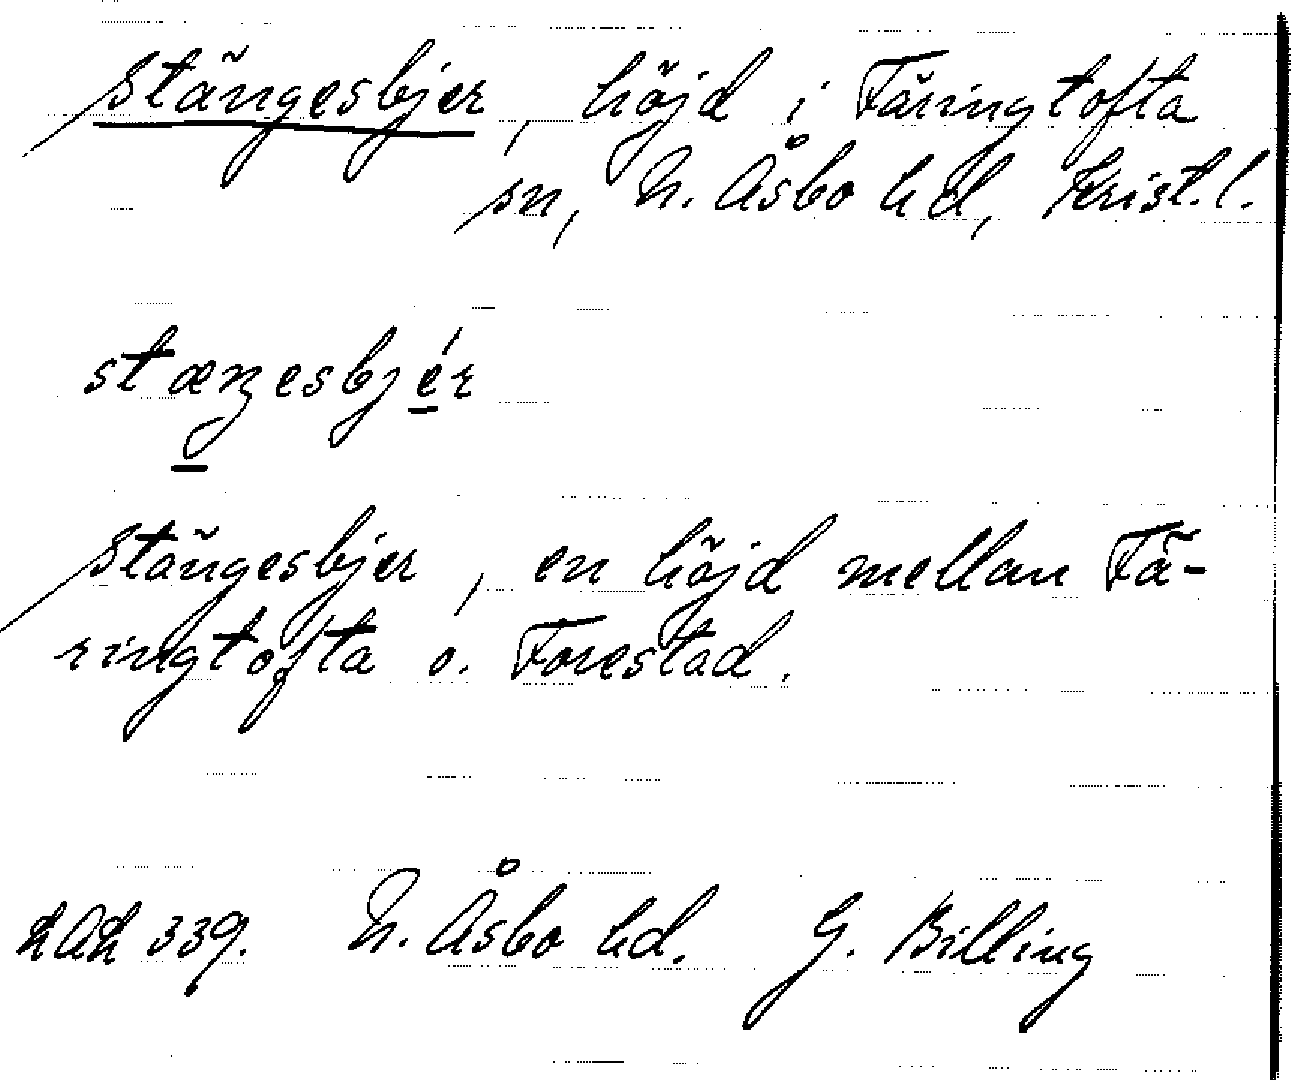 Stängesbjer, höjd i Färingtofta
sn, N. Åsbo hd, Krist. l.
stæŋesbjér
Stängesbjer, en höjd mellan Fä-
ringtofta o. Forestad.
LAL 339. N. Åsbo hd. G. Billing